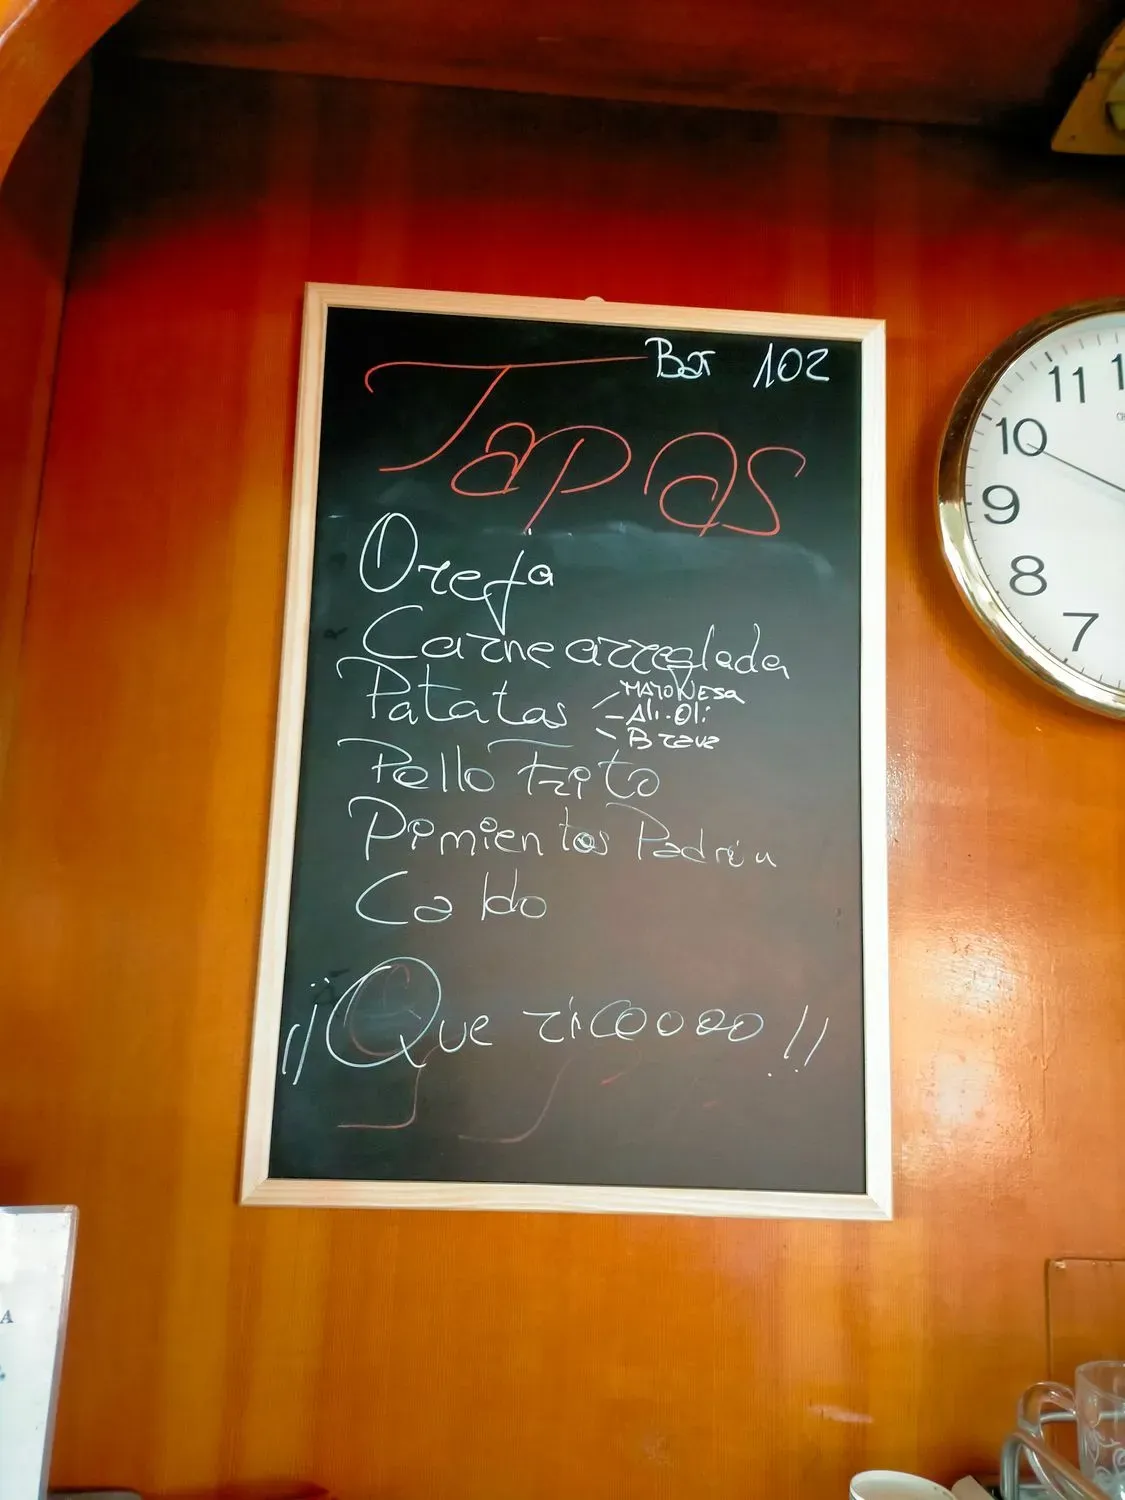 Bar 102
Tapas
Oreja
Carne arreglada
Patatas
- Mayonesa
- Ali-Oli
- Brava
Pollo Frito
Pimientos Padrón
Caldo
¡¡Que ricoooo!!
11 1
10
9
8
7
A